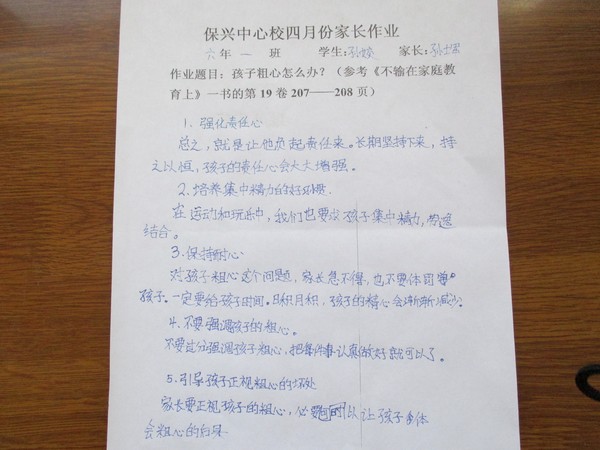 保兴中心校四月份家长作业
六年一班 学生:孙婷 家长:孙
作业题目:孩子粗心怎么办?(参考《不输在家庭教
育上》一书的第19卷207——208页)
1、强化责任心
总之,就是让他负起责任来。长期坚持下来,持
之以恒,孩子的责任心会大大增强。
2.培养集中精力的好习惯.
在运动和玩乐中,我们也要求孩子集中精力,劳逸
结合。
3.保持耐心
对孩子粗心这个问题,家长急不得,也不要体罚
孩子.一定要给孩子时间。日积月积,孩子的粗心会渐渐减少
4.不要强调孩子的粗心。
不要过分强调孩子粗心,把每件事认真做好就可以了。
5.引导孩子正视粗心的坏处
家长要正视孩子的粗心,必要时可以让孩子体
会粗心的后果